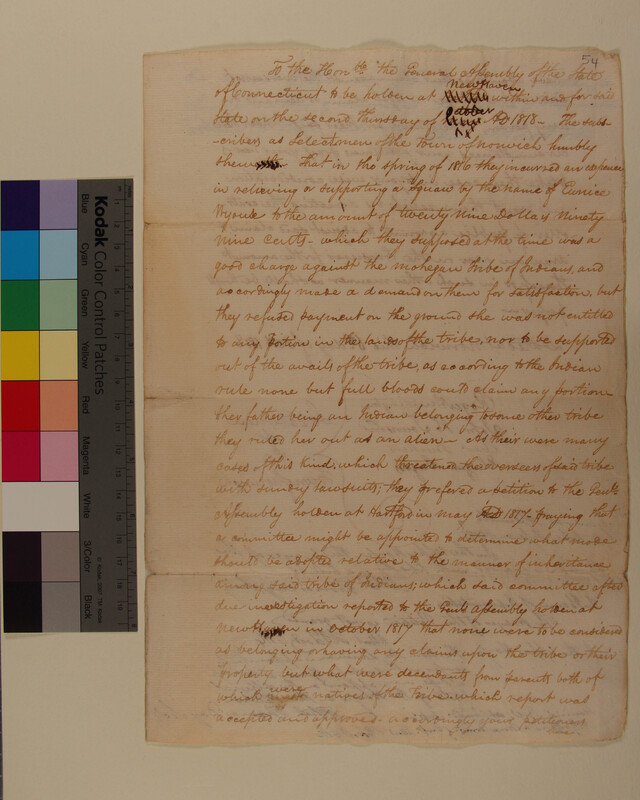 54
To the Honble the General Assembly of the State
of Connecticut to be holden at New Haven within and for said
State on the second thursday of October AD 1818 - The subs-
-cribers as Selectmen of the Town of Norwich humbly
shew that in the spring of 1816 they incurred an expence
in relieving or supporting a Squaw by the name of Eunice
to the amount of twenty nine Dollars Ninety
nine Cents - which they supposed at the time was a
good charge against the mohegan tribe of Indians, and
accordingly made a demand on them for satisfaction, but
they refused payment on the ground she was not entitled
to any portion in the lands of the tribe, nor to be supported
out of the avails of the tribe, as according to the Indian
rule none but full bloods could claim any portion
& her father being an Indian belonging to some other tribe
they ruled her out as an alien - As their were many
cases of this kind, which threatened the overseers of said tribe
with sundry lawsuits; they prefered a petition to the Genl
Assembly holden at Hartford in may AD 1817 - praying that
a committee might be appointed to determine what mode
should be adopted relative to the manner of inheritance
said tribe of Indians; which said committee after
due investigation reported to the Genl Assembly holden at
New Haven in October 1817 that none were to be considered
as belonging or having any claims upon the tribe or their
property but what were decendants from parents both of
which were natives of the tribe which report was
accepted and approved - accordingly your petitioners
Kodak Color Control Patches
Blue
Cyan
Green
Yellow
Red
Magenta
White
3/Color
Black